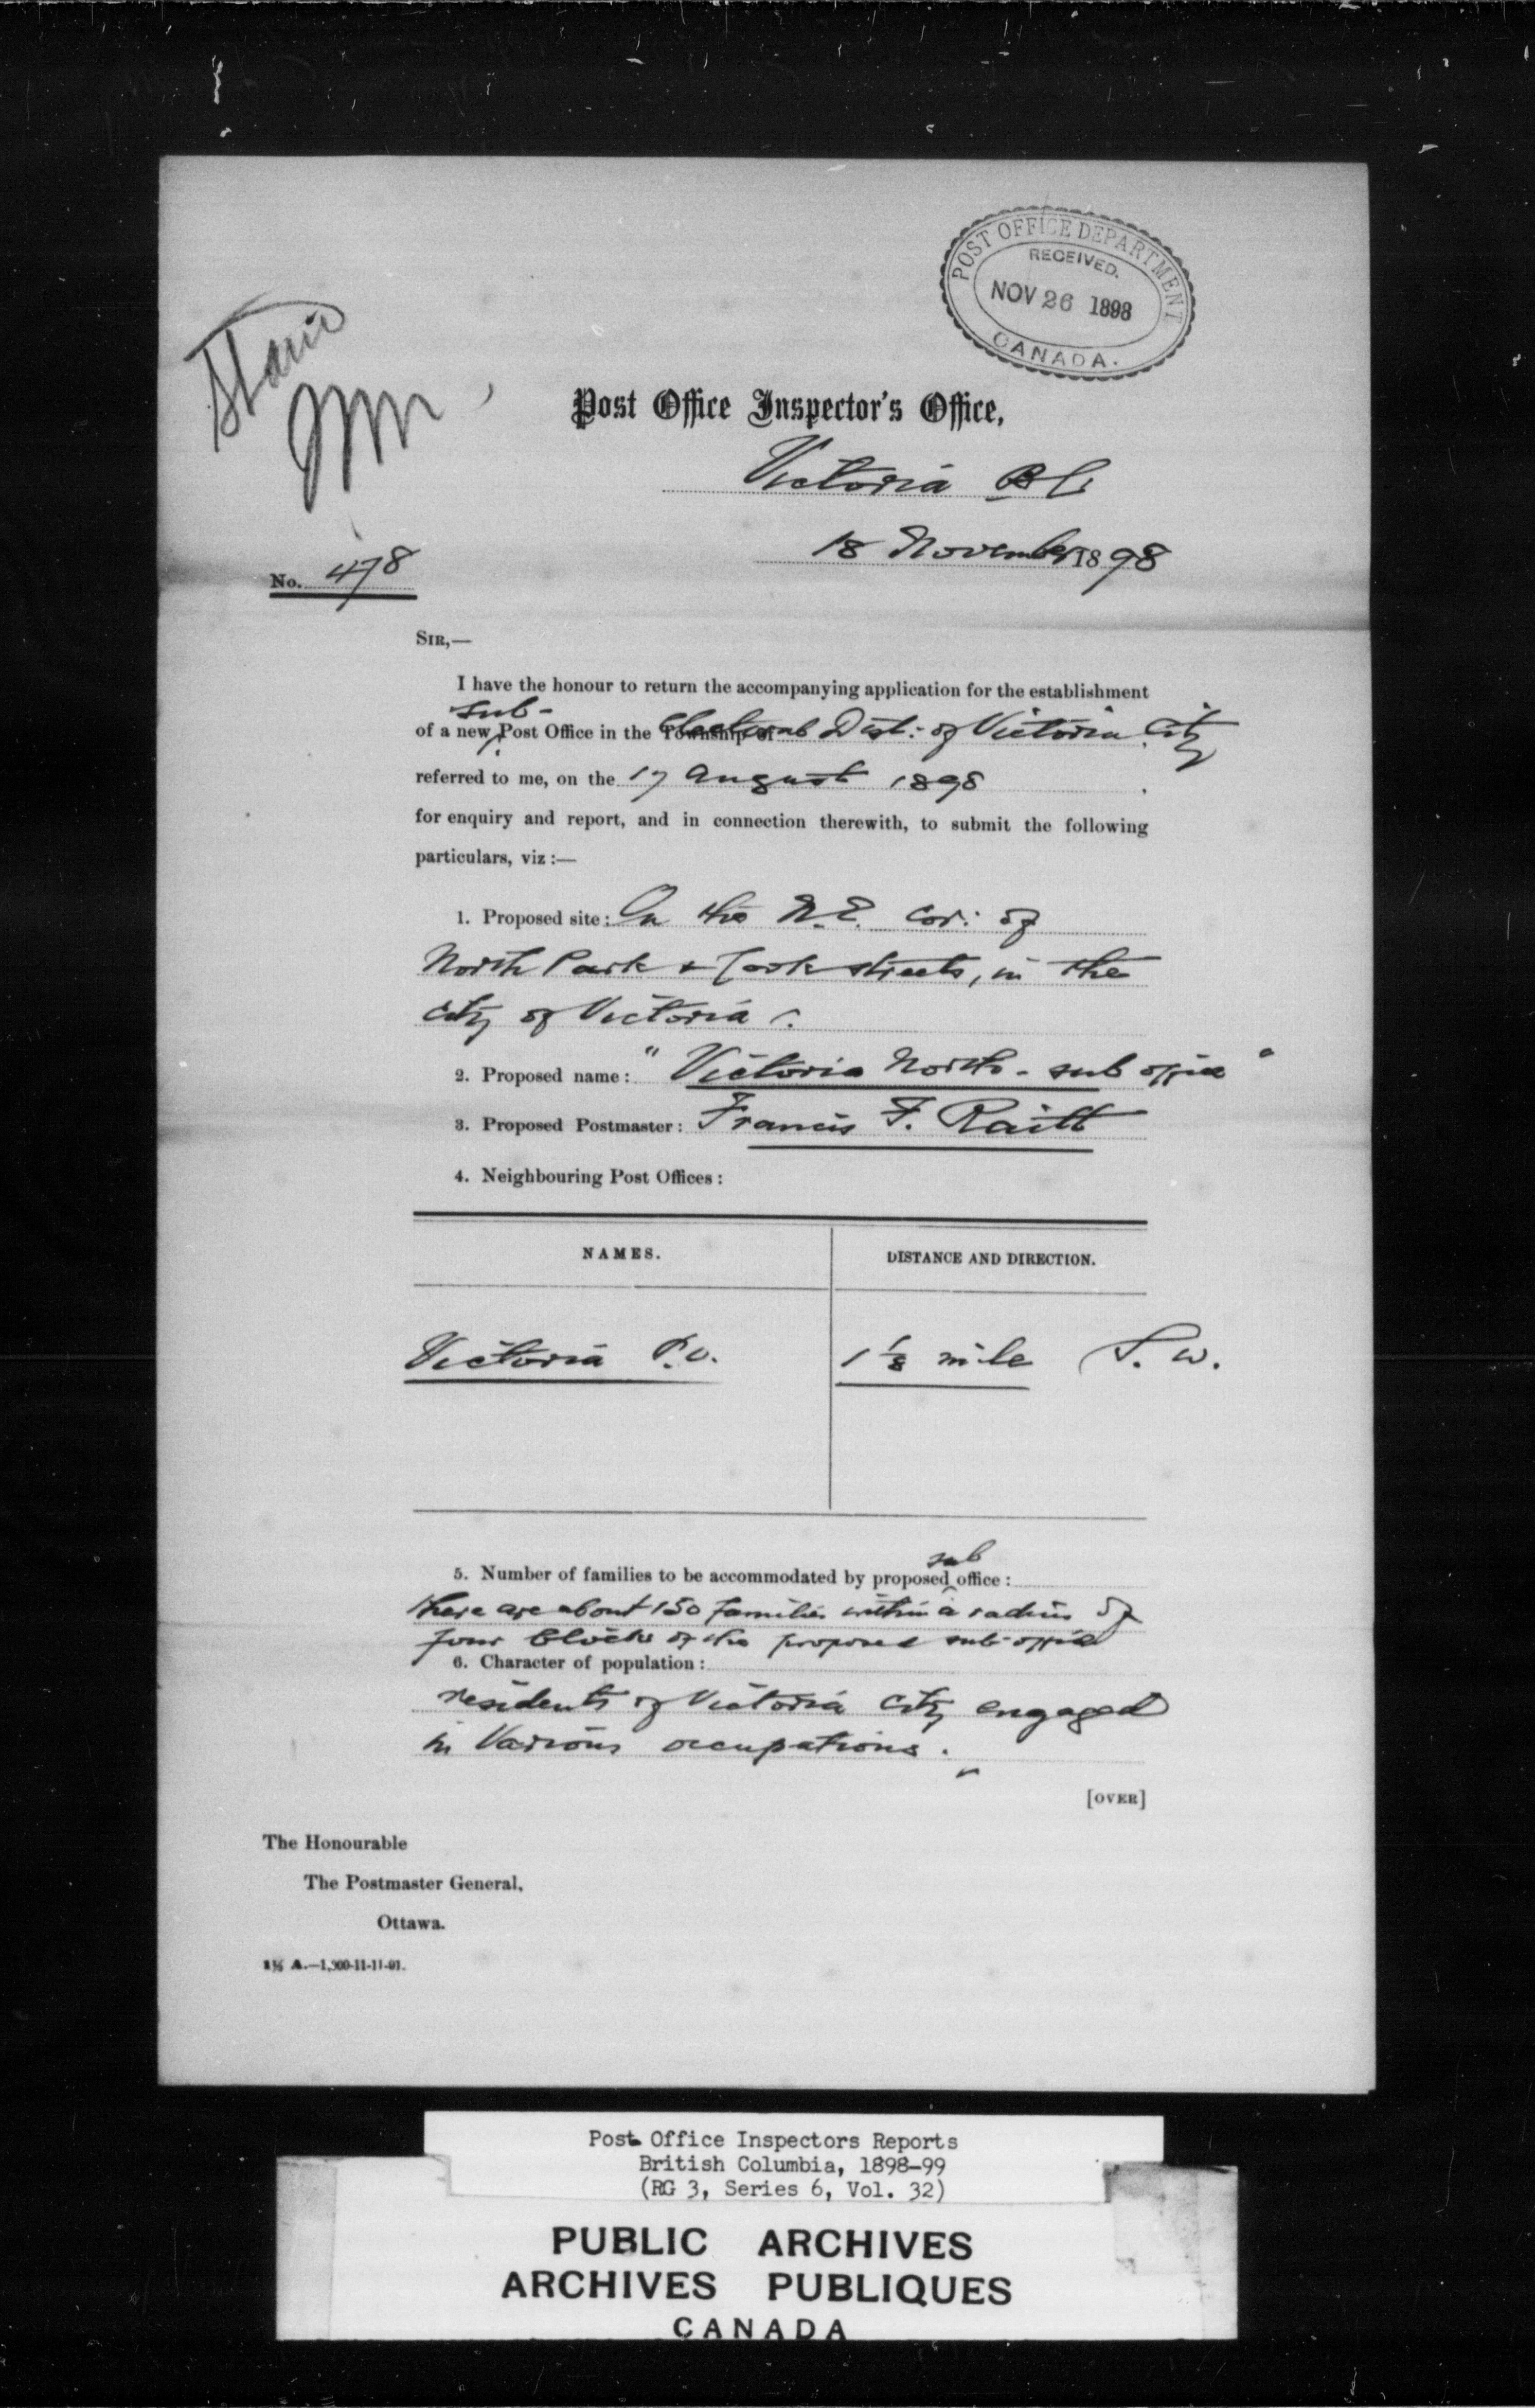 POST OFFICE DEPARTMENT
RECEIVED.
NOV 26 1898
CANADA.
Post Office Inspector's Office,
Victoria BC
18 November 1898
No. 478
SIR,—
I have the honour to return the accompanying application for the establishment
sub-
of a new Post Office in the Township of Electoral Dist: of Victoria City
referred to me, on the 17 August 1898
for enquiry and report, and in connection therewith, to submit the following
particulars, viz :—
1. Proposed site: On the N.E. cor: of
North Park & Cook streets, in the
city of Victoria.
2. Proposed name: "Victoria North - sub office"
3. Proposed Postmaster: Francis F. Raitt
4. Neighbouring Post Offices:
NAMES. DISTANCE AND DIRECTION.
Victoria P.O. 1 1/8 mile S.W.
sub
5. Number of families to be accommodated by proposed office:
there are about 150 families within a radius of
four blocks of the proposed sub-office
6. Character of population:
residents of Victoria City engaged
in various occupations.
[OVER]
The Honourable
The Postmaster General,
Ottawa.
A.—1,300-11-11-91.
Post Office Inspectors Reports
British Columbia, 1898-99
(RG 3, Series 6, Vol. 32)
PUBLIC ARCHIVES
ARCHIVES PUBLIQUES
CANADA